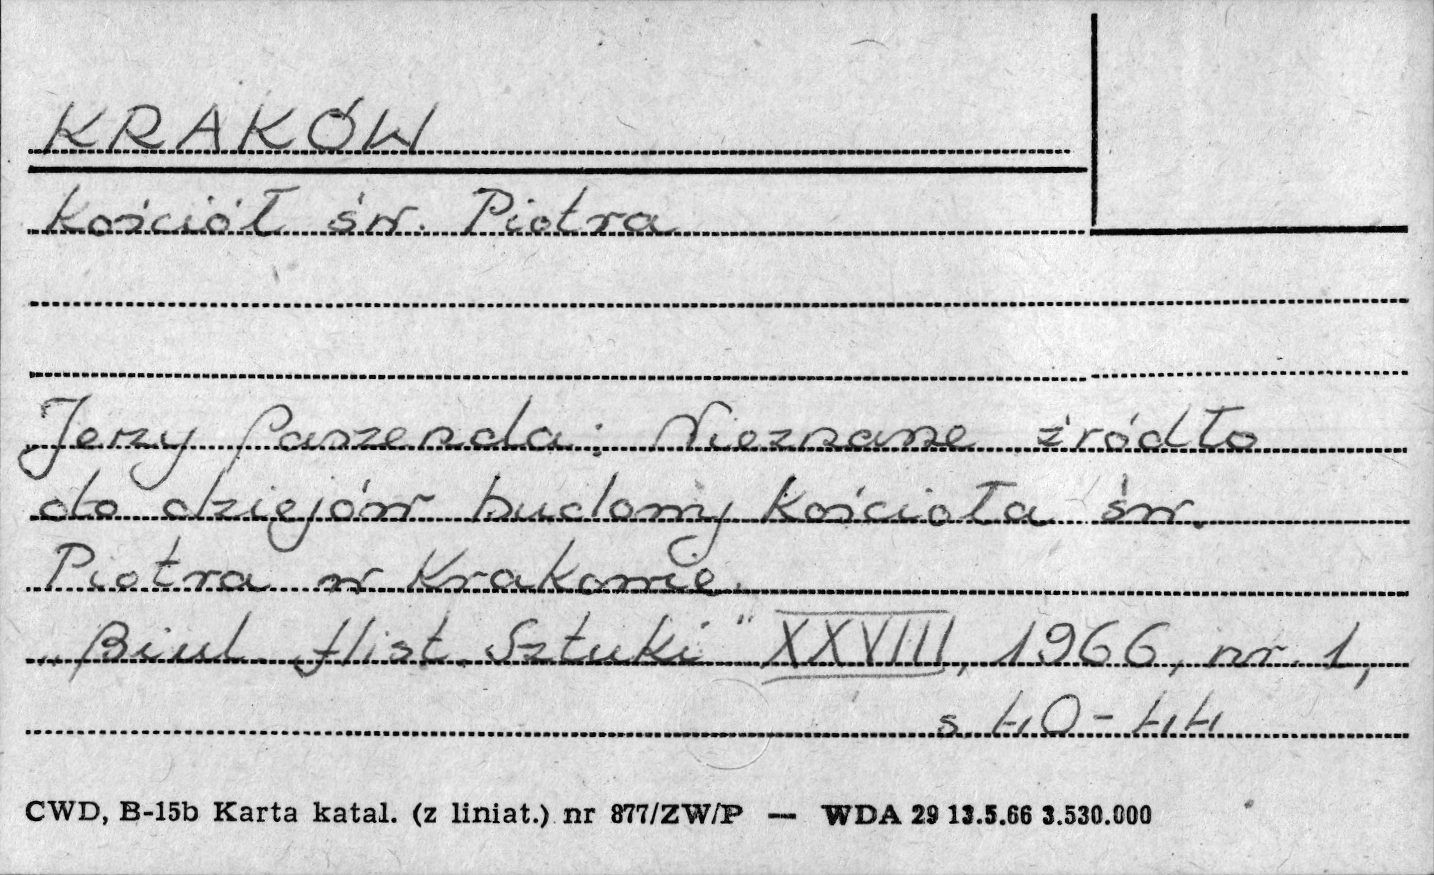 KRAKÓW
Kościół św. Piotra
Jerzy Paszenda: Nieznane źródło
do dziejów budowy kościoła św.
Piotra w Krakowie.
„Biul. Hist. Sztuki" XXVIII, 1966, nr. 1,
s. 40-44
CWD, B-15b Karta katal. (z liniat.) nr 877/ZW/P — WDA 29 13.5.66 3.530.000